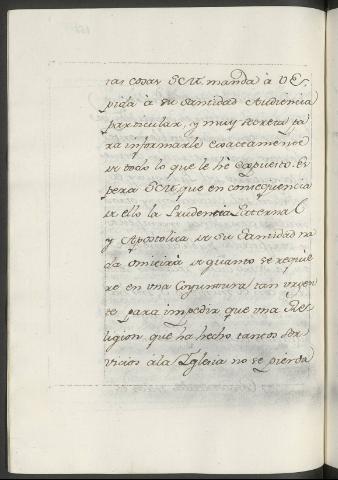 las cosas SCM manda à VEs.
pida à su Santidad Audiencia
particular, y muy secreta pa
ra informarle exactamente
de todo lo que le hè expuesto. Es
pera SCM, que en conseqüencia
de ello la Prudencia Paternal
y Apostolica de su Santidad na
da omitirà de quanto se requie
re en una Coyuntura tan urgen
te para impedir que una Re
ligion, que hà hecho tantos ser
vicios àla Yglesia no se pierda